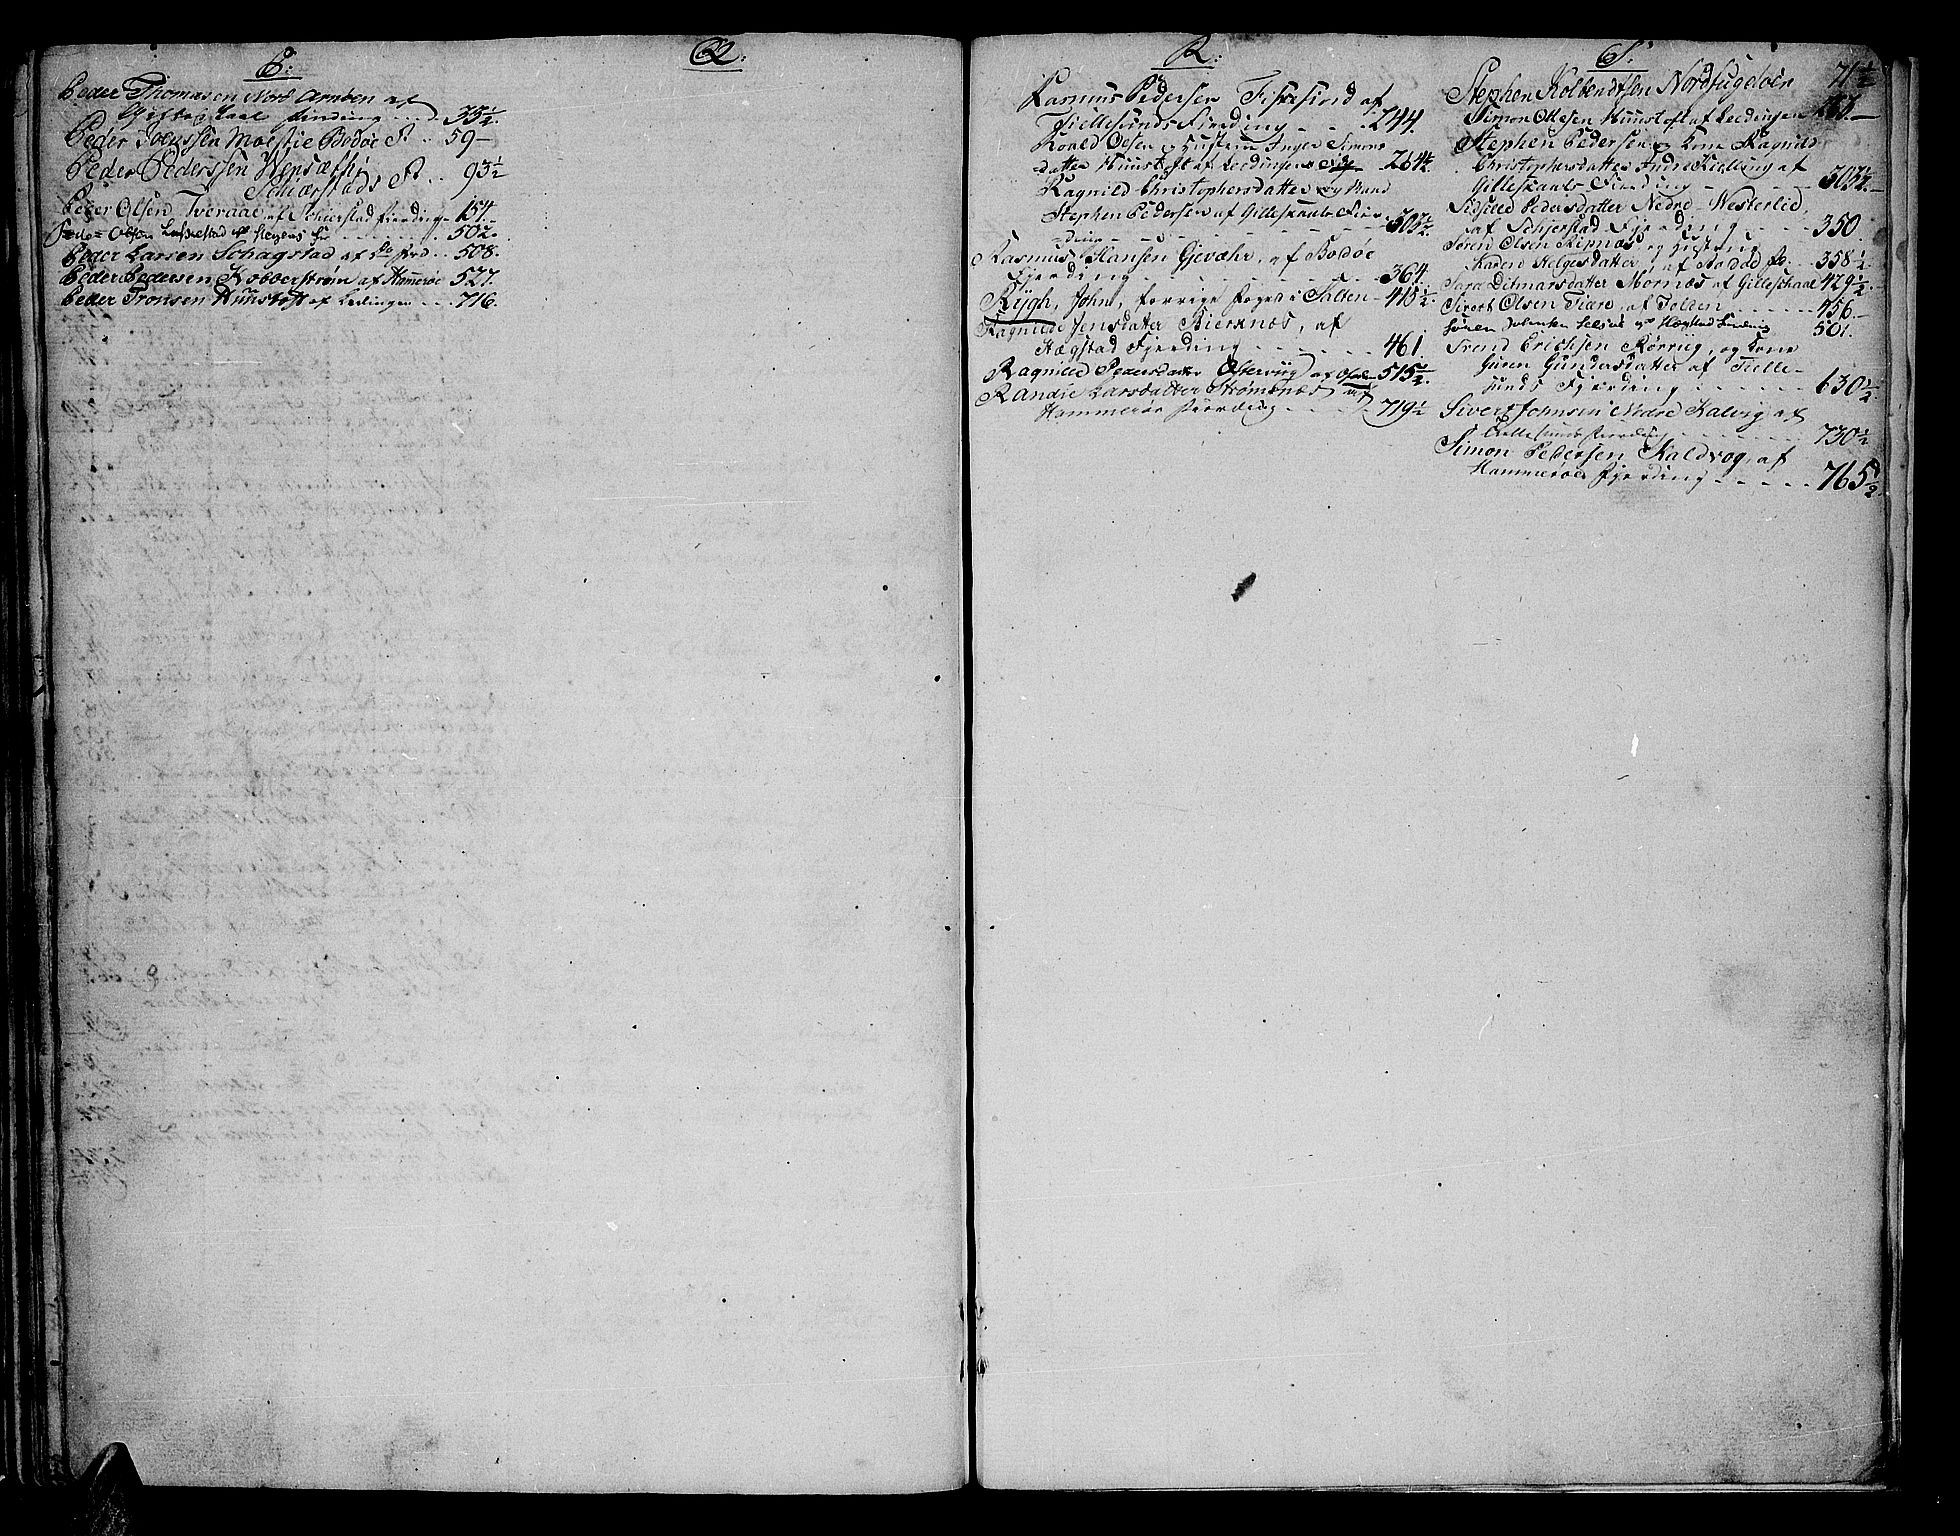 P:
Peder Thomæsen Nord Arnøen af
Giftes Kaal fierding . . . 35½.
Peder Joenssen Moestie Bodöe F. 59 —
Peder Pederssen Wensæt
Schierstads F. . . 93½
Peder Olsen Tveraae af Schierstad fierding - 154.
Peder Olsen Laskestad af Stegens F: . . . . 502.
Peder Larsen Schagstad af do fierd. . 508.
Peder Pedersen Kobberstrøm af Hamerøe 527.
Peder Tronsen Hunstoft af Lødingen . . . 716.
Q:
R:
Rasmus Pedersen Fiskefiord af
Tiellesunds Fierding . . . . 244.
Roald Olsen og Hustrue Inger Simons
datter Hunstoft af Lødingens 264½.
Ragnild Christophersdatter og Mand
Stephen Pedersen af Gilleskaals Fier-
ding - - - - - - - - 303½.
Rasmus Hansen Gjevæhr, af Bodöe
Fjerding . . . . . . . . 364.
Rÿgh, John, forrige foged i Salten - 415½.
Ragnilde Jensdatter Biernæs, af
Hægstad Fjerding . . . . . . . 461.
Ragnild Pedersdatter Østervig af 515½.
Randie Larsdatter Strømsnæs af
Hammerøe fierding . . . . . . 719½
S:
Stephen Kolbendtsen Nordfugeløen 71½
Simon Ottesen Hunstoft af Lødingen
Stephen Pedersen og Kone Ragnild
Christophersdatter Indre Kielling af
Gilleskaals Fierding - - - - - 303½.
Sidsild Pedersdatter Nedre-Westerlid,
af Schjerstad Fjerding . . . . . 350.
Søren Olsen Ripnæs og Hustrue
Karen Helgesdatter, af Bodöe F. . . 358½
Sara Ditmarsdatter Mornæs af Gilleschaal 429½.
Siverth Olsen Fiære af Folden . . . . 456 —
Søren Johansen af Hægstad fierding 501.
Svend Erichsen Rørvig, og Kone
Guren Gundersdatter af Tielle-
sunds Fjerding . . . . . . . 630½.
Sivert Johnsen Nedre Kalvig af
Tiellesunds fierding . . . . . . . 730½
Simon Pedersen Kaldvog, af
Hammerøe Fjerding . . . . . 765½